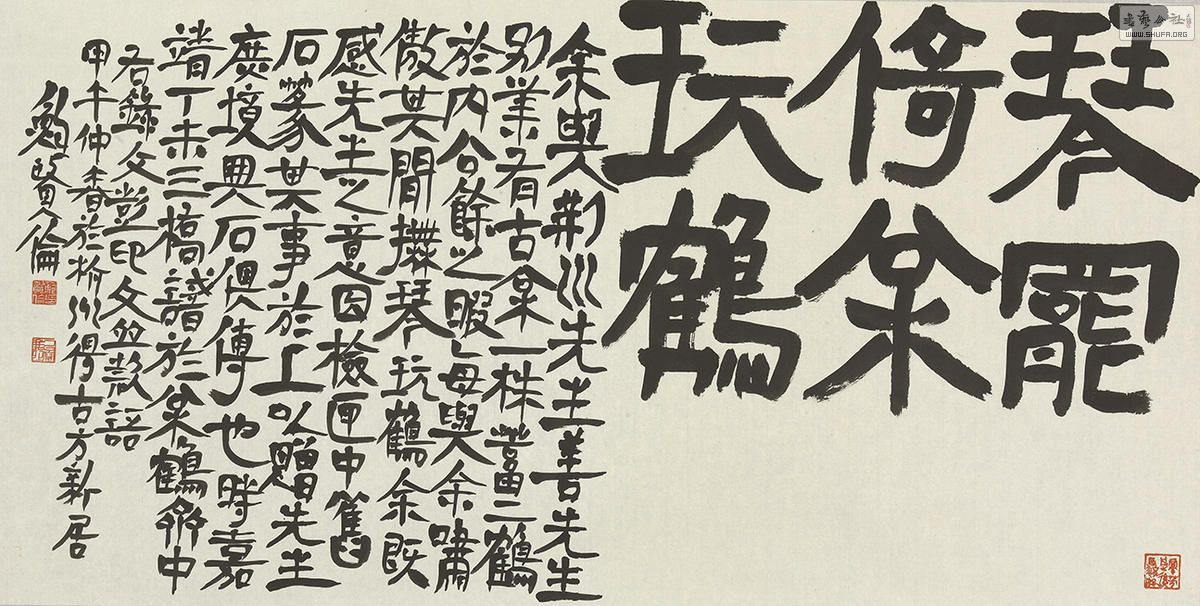 琴罷
倚枀
玩鶴
余與荊川先生善先生
別業有古枀一株蓄二鶴
於內公餘之暇每與余嘯
傲其間撫琴玩鶴余既
感先生之意因檢匣中舊
石篆其事於上以贈先生
庶境與石俱傳也時嘉
靖丁未三橋識於枀鶴齋中
右錄文彭印文並款語
甲午仲春於杭州得古方新居
鮑賢倫
書藝公社
WWW.SHUFA.ORG